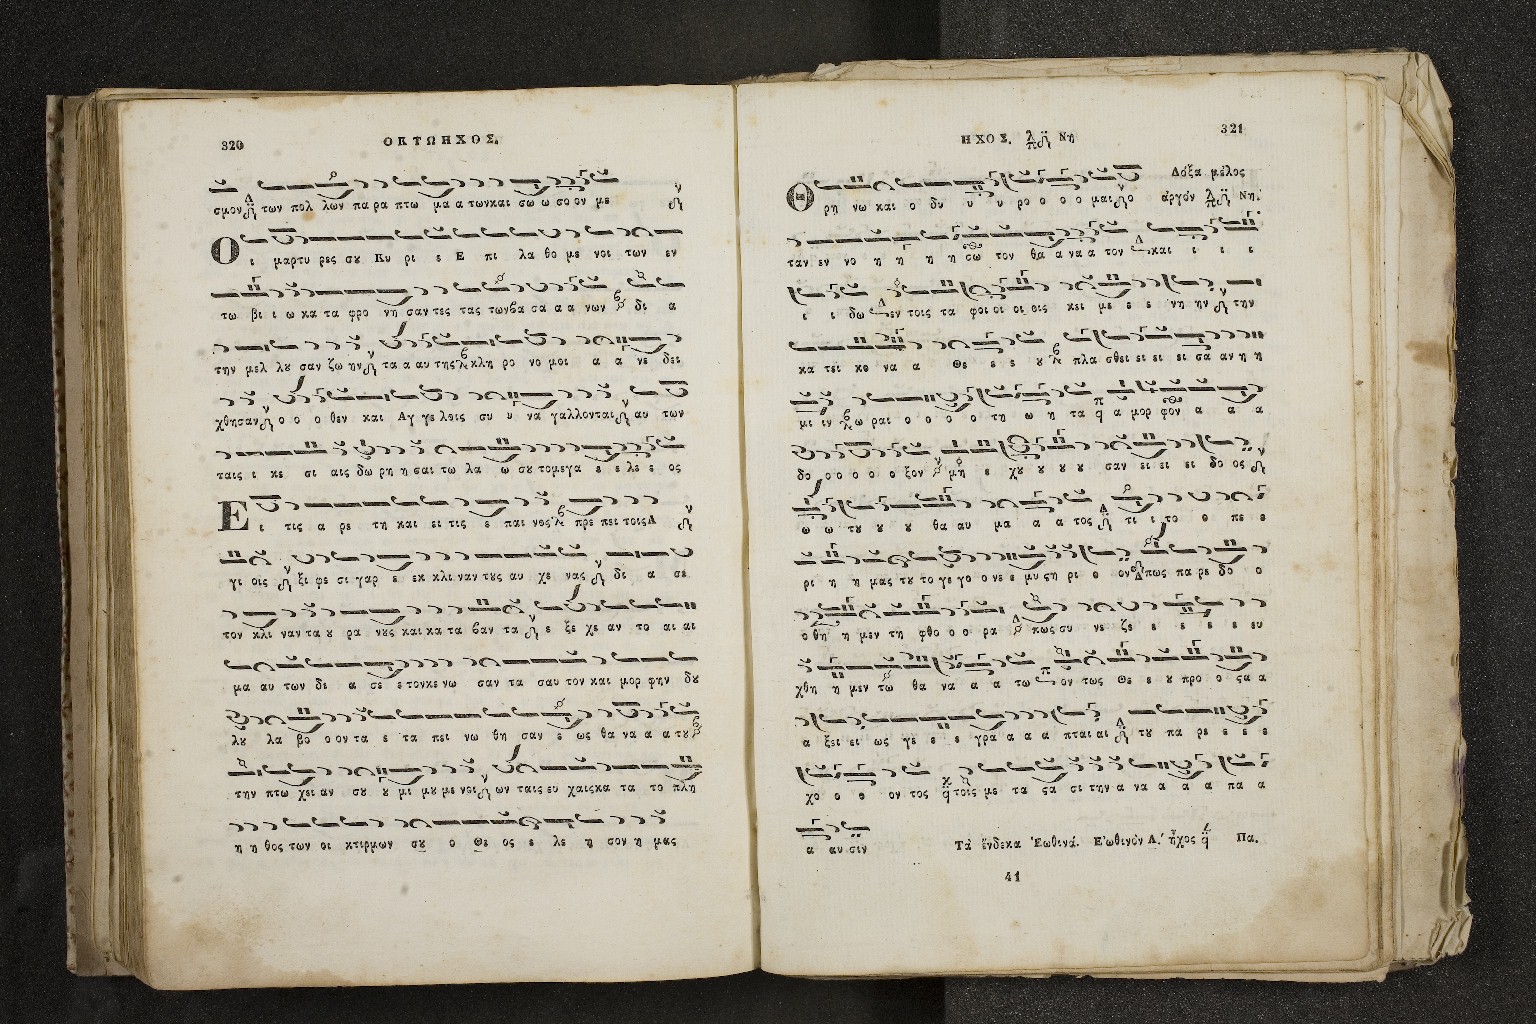 320
ΟΚΤΩΗΧΟΣ.
σμον των πολ λων πα ρα πτω μα α των και σω ω σο ον με
Ο ι μαρτυ ρες σου Κυ ρι ε Ε πι λα θο με νοι των εν
τω βι ι ω κα τα φρο νη σαν τες τας των βα σα α α νων δι α
την μελ λου σαν ζω ην τα α αυ της κλη ρο νο μοι α α νε δει
χθησαν ο ο ο θεν και Αγ γε λεις συ υ να γαλλονται αυ των
ταις ι κε σι αις δω ρη η σαι τω λα ω σου το μεγα ε ε λε ε ος
Ε ι τις α ρε τη και ει τις ε παι νος πρε πει τοις Α
γι οις ξι φε σι γαρ ε εκ κλι ναν τους αυ χε νας δι α σε
τον κλι ναν τα ου ρα νους και κα τα βαν τα ε ξε χε αν το αι αι
μα αυ των δι α σε ε τον κε νω σαν τα σαυ τον και μορ φην δου
λου λα βο ο ον τα ε τα πει νω θη σαν ε ως θα να α α του
την πτω χει αν σου ου μι μου με νει ων ταις ευ χαις κα τα το πλη
η η θος των οι κτιρμων σου ο Θε ος ε λε η σον η μας
ΗΧΟΣ. Νη
321
Δόξα μέλος
Θ ρη νω και ο δυ υ υ ρο ο ο ο μαι ο
αργόν Νη.
ταν εν νο η η η η σω τον θα α να α τον και ι ι ι
ι ι δω εν τοις τα φοι οι οι οις κει με ε ε νη ην την
κα τει κο να α Θε ε ε ου πλα σθει ει ει ει σα αν η η
μι ιν ω ραι ο ο ο ο τη ω η τα α μορ φον α α α
δο ο ο ο ο ο ξον μη ε χου ου ου ου σαν ει ει ει δο ος
ω ω του ου ου θα αυ μα α α τος τι ι το ο πε ε
ρι η η μας του το γε γο ο νε ε μυ ςη ρι ο ον πως πα ρε δο ο
ο θη η μεν τη φθο ο ο ρα πως συ νε ζε ε ε ε ε ευ
χθη η μεν τω θα να α α τω ον τως Θε ε ου προ ο ςα α
α ξει ει ως γε ε ε γρα α α α πται αι του πα ρε ε ε ε
χο ο ο ον τος τοις με τα ςα σι την α να α α α πα α
α αυ σιν
Τα ένδεκα Έωθινά. Εωθινόν Α.′ ήχος Πα.
41